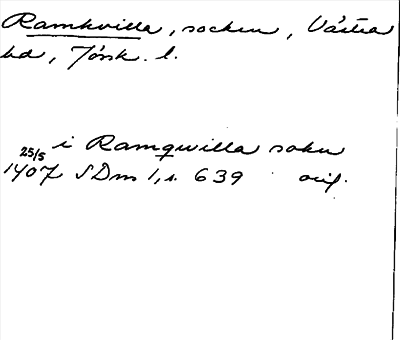 Ramkvilla, socken, Västra
hd, Jönk. l.
i Ramqwilla sokn
25/5
1407 SDm 1, s. 639 orig.